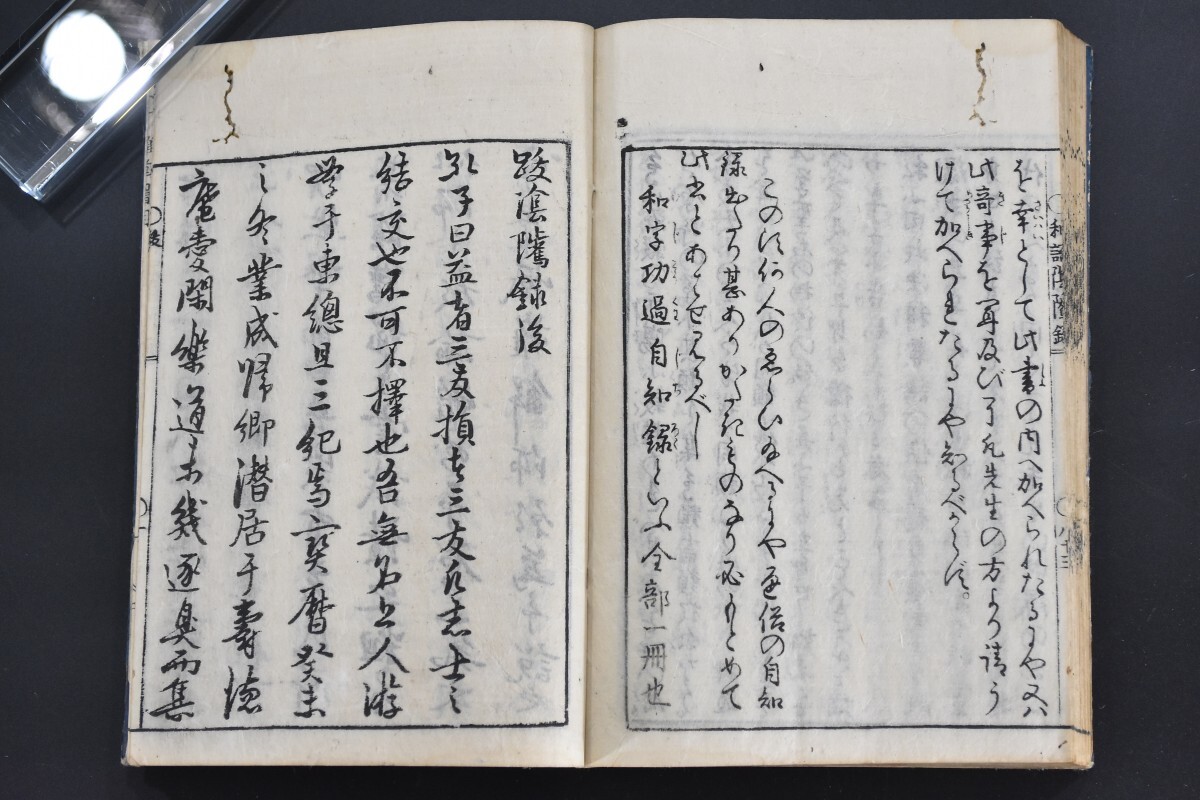 を幸として此書の内へ加へられたるにや又ハ
此奇事を聞及び了凡先生の方より請う
けて加へられたるにや知るべからず。
この頃何人のゑらひ給へるにや通俗の自知
録出たり甚ありがたきものなり必もとめて
此書とあハせ見るべし
和字功過自知録といふ全部一冊也
和語陰隲録
跋陰隲録後
孔子曰益者三友損者三友凡志士之
結交也不可不擇也吾無名上人游
學于東總且三紀焉寶暦癸未
之冬業成歸郷潜居于壽徳
菴愛閑樂道
逐臭而集